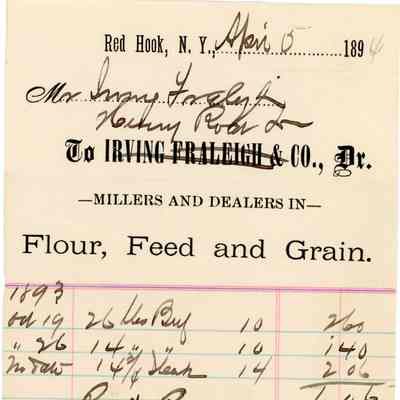 Red Hook, N. Y., April 5 1894
Mr Irving Fraleigh
Henry
To IRVING FRALEIGH & CO., Dr.
—MILLERS AND DEALERS IN—
Flour, Feed and Grain.
1893
Oct 19 26 lbs Beef 10 260
" 26 14 " " 10 140
14 Steak 14 2 06